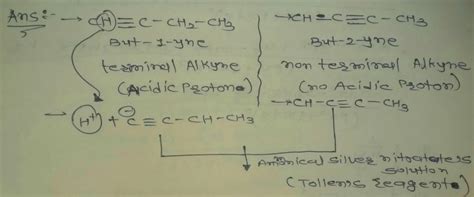 Ans:-
5
CH≡C-CH₂-CH₃
But-1-yne
terminal Alkyne
(Acidic Proton)
H⁺ + C⊖≡C-CH-CH₃
CH≡C≡C-CH₃
But-2-yne
non terminal Alkyne
(no Acidic Proton)
CH-C≡C-CH₃
Amonical silver nitrate
solution
(Tollens Reagent)